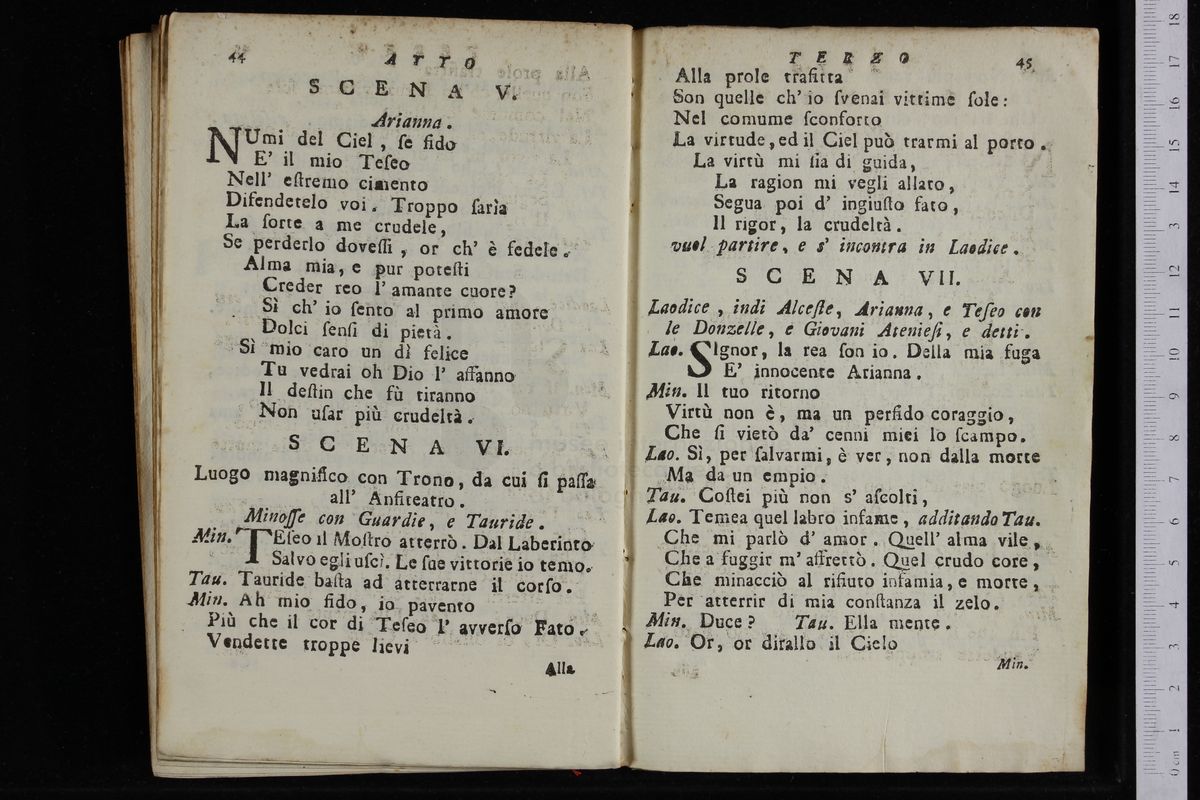 44 ATTO
SCENA V.
Arianna.
NUmi del Ciel, ſe fido
E' il mio Teſeo
Nell' eſtremo cimento
Difendetelo voi. Troppo ſarìa
La ſorte a me crudele,
Se perderlo doveſſi, or ch' è fedele.
Alma mia, e pur poteſti
Creder reo l' amante cuore?
Sì ch' io ſento al primo amore
Dolci ſenſi di pietà.
Sì mio caro un dì felice
Tu vedrai oh Dio l' affanno
Il deſtin che fù tiranno
Non uſar più crudeltà.
SCENA VI.
Luogo magnifico con Trono, da cui ſi paſſa
all' Anfiteatro.
Minoſſe con Guardie, e Tauride.
Min. TEſeo il Moſtro atterrò. Dal Laberinto
Salvo egli uſcì. Le ſue vittorie io temo.
Tau. Tauride baſta ad atterrarne il corſo.
Min. Ah mio fido, io pavento
Più che il cor di Teſeo l' avverſo Fato.
Vendette troppe lievi
Alla
TERZO 45
Alla prole trafitta
Son quelle ch' io ſvenai vittime ſole:
Nel comune ſconforto
La virtude, ed il Ciel può trarmi al porto.
La virtù mi ſia di guida,
La ragion mi vegli allato,
Segua poi d' ingiuſto fato,
Il rigor, la crudeltà.
vuol partire, e s' incontra in Laodice.
SCENA VII.
Laodice, indi Alceſte, Arianna, e Teſeo con
le Donzelle, e Giovani Atenieſi, e detti.
Lao. SIgnor, la rea ſon io. Della mia fuga
E' innocente Arianna.
Min. Il tuo ritorno
Virtù non è, ma un perfido coraggio,
Che ſi vietò da' cenni miei lo ſcampo.
Lao. Sì, per ſalvarmi, è ver, non dalla morte
Ma da un empio.
Tau. Coſtei più non s' aſcolti,
Lao. Temea quel labro infame, additando Tau.
Che mi parlò d' amor. Quell' alma vile,
Che a fuggir m' affrettò. Quel crudo core,
Che minacciò al rifiuto infamia, e morte,
Per atterrir di mia conſtanza il zelo.
Min. Duce? Tau. Ella mente.
Lao. Or, or dirallo il Cielo
Min.
0 cm 1 2 3 4 5 6 7 8 9 10 11 12 13 14 15 16 17 18